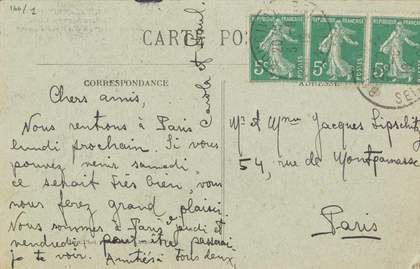 166/1
CARTE POS
CORRESPONDANCE
ADRESSE
REPUBLIQUE FRANÇAISE
REPUBLIQUE FRANÇAISE
REPUBLIQUE FRANÇAISE
5c POSTES
5c POSTES
5c POSTES
Chers amis,
Nous rentrons à Paris
lundi prochain. Si vous
pouvez venir samedi,
ce serait très bien, vous
nous ferez grand plaisir.
Nous sommes à Paris jeudi et
vendredi peut-être passerai
je te voir. Amitiés tous deux,
Carola et Raul.
Mr et Mme Jacques Lipschitz
54, rue de Montparnasse
Paris